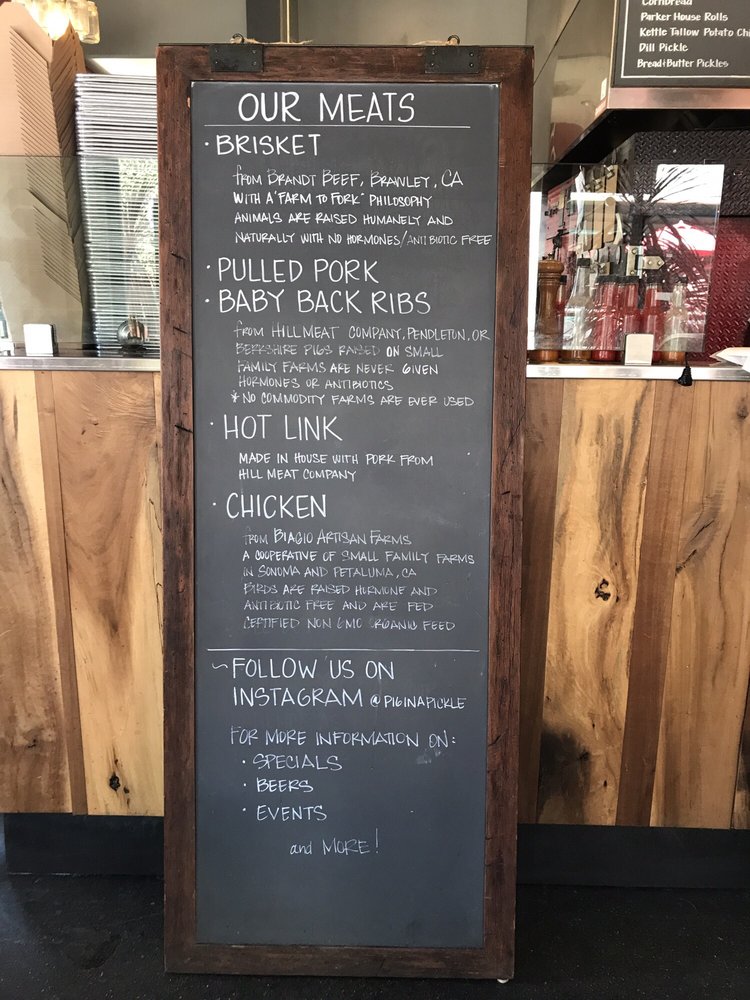 OUR MEATS
· BRISKET
from BRANDT BEEF, BRAWLEY, CA
WITH A "FARM TO FORK" PHILOSOPHY
ANIMALS ARE RAISED HUMANELY AND
NATURALLY WITH NO HORMONES/ANTIBIOTIC FREE
· PULLED PORK
· BABY BACK RIBS
from HILL MEAT COMPANY, PENDLETON, OR
BERKSHIRE PIGS RAISED ON SMALL
FAMILY FARMS ARE NEVER GIVEN
HORMONES OR ANTIBIOTICS
* NO COMMODITY FARMS ARE EVER USED
· HOT LINK
MADE IN HOUSE WITH PORK FROM
HILL MEAT COMPANY
· CHICKEN
from BIAGIO ARTISAN FARMS
A COOPERATIVE OF SMALL FAMILY FARMS
IN SONOMA AND PETALUMA, CA
BIRDS ARE RAISED HORMONE AND
ANTIBIOTIC FREE AND ARE FED
CERTIFIED NON GMO ORGANIC FEED
~ FOLLOW US ON
INSTAGRAM @PIGINAPICKLE
FOR MORE INFORMATION ON:
· SPECIALS
· BEERS
· EVENTS
and MORE!
Cornbread
Parker House Rolls
Kettle Tallow Potato Chi
Dill Pickle
Bread+Butter Pickles